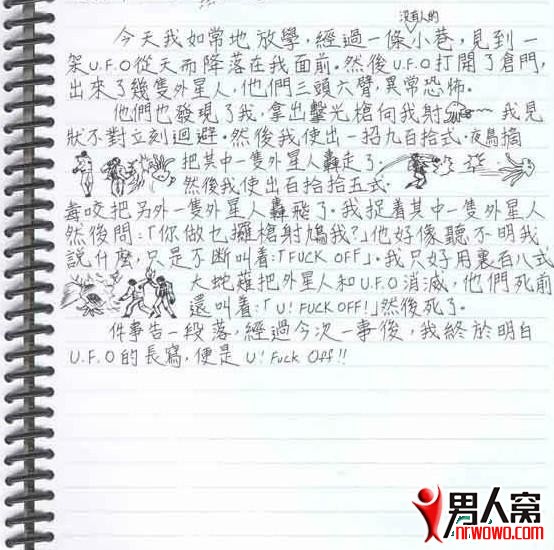 沒有人的
今天我如常地放學,經過一條小巷,見到一
架U.F.O從天而降落在我面前。然後U.F.O打開了倉門,
出來了幾隻外星人,他們三頭六臂,異常恐怖。
他們也發現了我,拿出擊光槍向我射 我見
狀不對立刻迴避。然後我使出一招九百拾式·夜鳥摘
把其中一隻外星人轟走了。
然後我使出百拾拾五式·
毒咬把另外一隻外星人轟飛了。我捉着其中一隻外星人
然後問:「你做乜攞槍射鳩我?」他好像聽不明我
說什麼,只是不斷叫着:「FUCK OFF」。我只好用裏百八式
大蛇薙把外星人和UFO消滅,他們死前
還叫着:「U! FUCK OFF!」然後死了。
件事告一段落,經過今次一事後,我終於明白
U.F.O的長寫,便是U! Fuck Off!!
男人窝
nrwowo.com